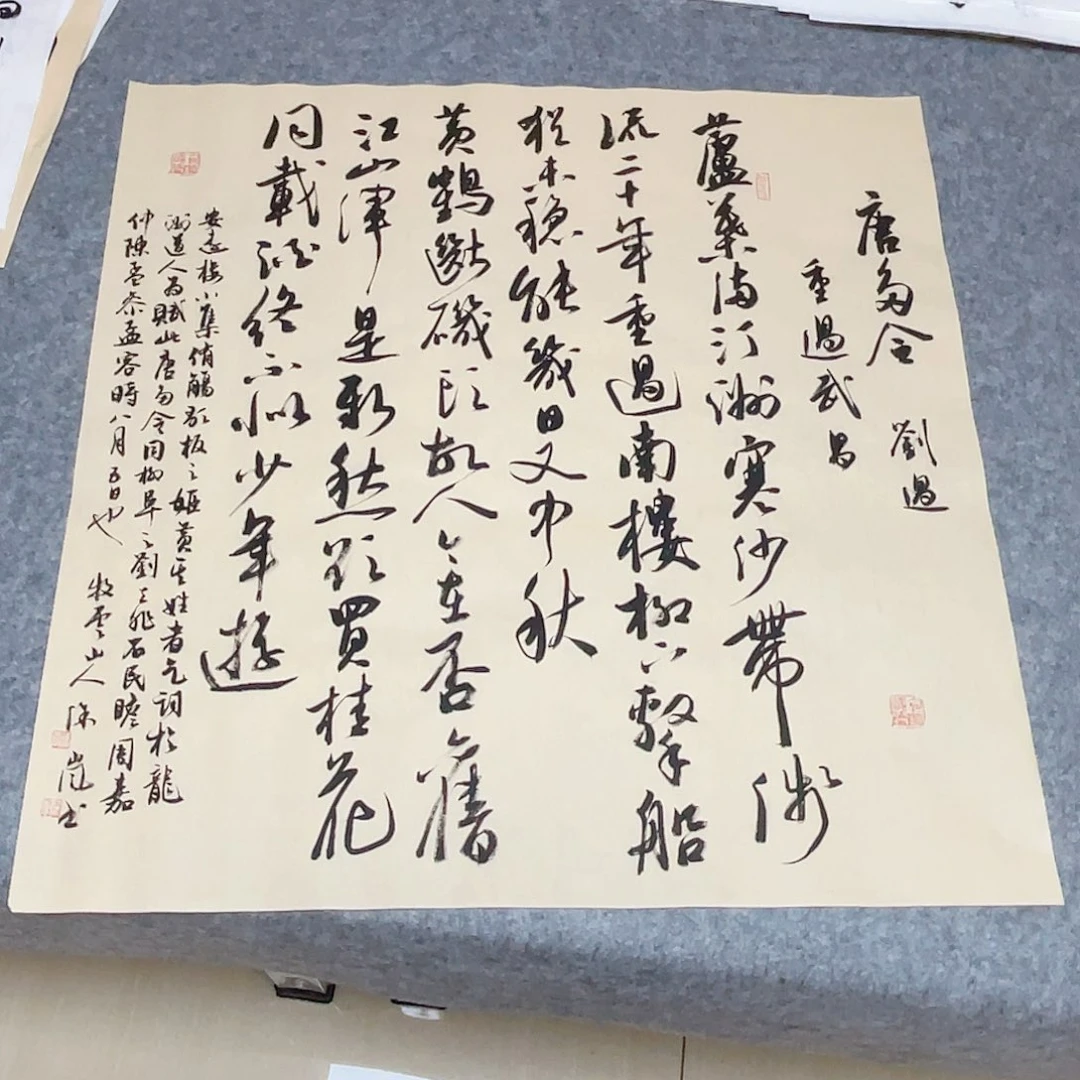 唐多令 劉過
重過武昌
蘆葉滿汀洲寒沙帶淺
流二十年重過南樓柳下繫船
猶未穩能幾日又中秋
黃鶴斷磯頭故人今在否舊
江山渾是新愁欲買桂花
同載酒終不似少年遊
安遠樓小集侑觴歌板之姬黃其姓者乞詞於龍
洲道人為賦此唐多令同柳阜之劉去非石民瞻周嘉
仲陳孟參孟容時八月五日也 牧雲山人 嵐書